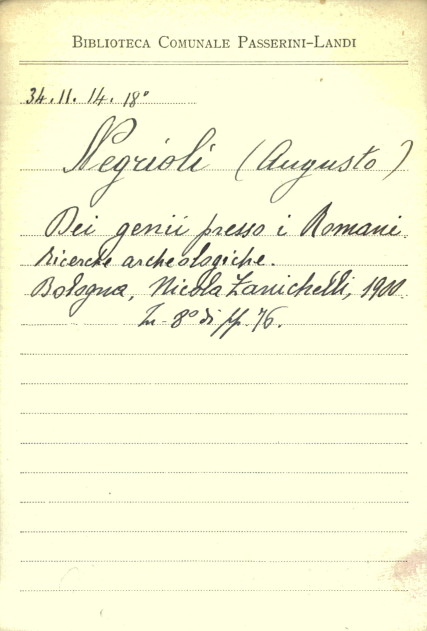 BIBLIOTECA COMUNALE PASSERINI-LANDI
34.11.14.18°
Negrioli (Augusto)
Dei genii presso i Romani.
Ricerche archeologiche.
Bologna, Nicola Zanichelli, 1900
In-8° di pp. 76.